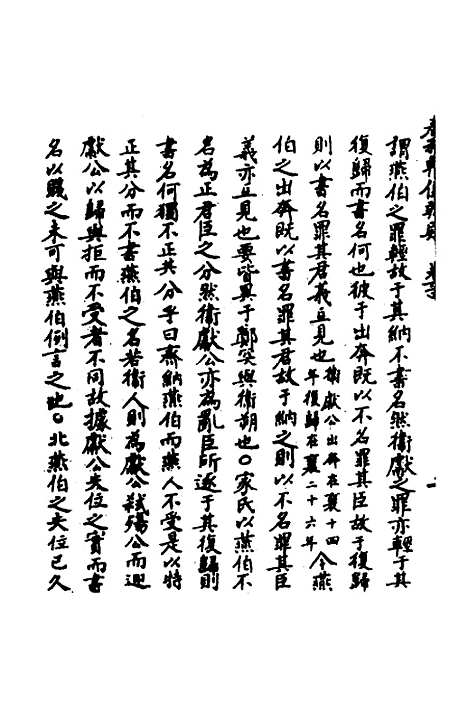 謂燕伯之罪輕故于其納不書名然衞獻之罪亦輕于其
復歸而書名何也彼于出奔既以不名罪其臣故于復歸
則以書名罪其君義互見也衞獻公出奔在襄十四年復歸在襄二十六年今燕
伯之出奔既以書名罪其君故于納之則以不名罪其臣
義亦互見也要皆異于鄭突與衞朔也○家氏以燕伯不
名為正君臣之分然衞獻公亦為亂臣所逐于其復歸則
書名何獨不正其分乎曰齊納燕伯而燕人不受是以特
正其分而不書燕伯之名若衞人則為獻公弒殤公而迎
獻公以歸與拒而不受者不同故據獻公失位之實而書
名以賤之未可與燕伯例言之也○北燕伯之失位已久